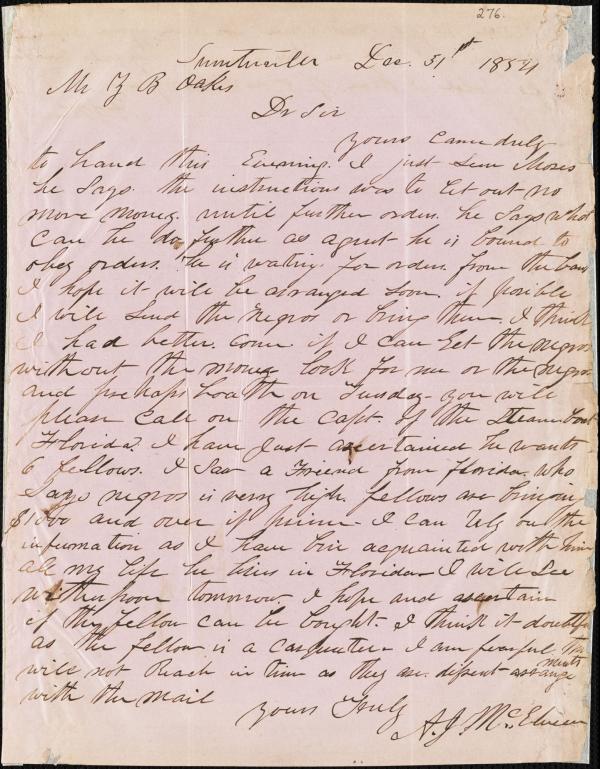 276.
Sumterville Dec. 31st 1854
Mr Z B Oakes
Dr Sir
yours came duly
to hand this Evening. I just seen Moses
he Says the instructions was to let out no
more money. until further orders. he Says what
Can he do further as agent he is bound to
obey orders. He is wating for orders from the bank
I hope it will be arranged soon. if posible
I will Send the negros or bring them. I think
I had better. Come if I can Get the negros
without the money look for me or the negros
and perhaps boath on Tuesday you will
please Call on the Capt. of the Steam boat
Florida. I have Just ascertained he wants
6 fellows. I Saw a Friend from Florida. who
Says negros is verry high. fellows are bringin
$1000 and over if prime - I can rely on the
information as I have bin acquainted with him
all my life he lives in Florida I will See
Witherspoon tomorrow I hope and ascertain
if the fellow can be bought - I think it doubtful
as the fellow is a carpenter - I am fearful this
will not Reach in time as they are. diffrent arrange
ments
with the mail
yours Truly
A. J. McElveen